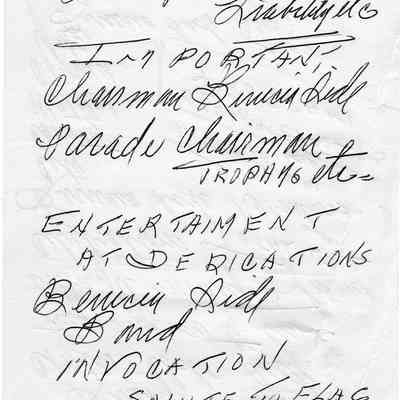 Liability etc
IMPORTANT,
Chairman Benicia Side
Parade Chairman
etc=
ENTERTAIMENT
AT DEDICATIONS
Benicia Side
Band
INVOCATION
SALUTE TO FLAG